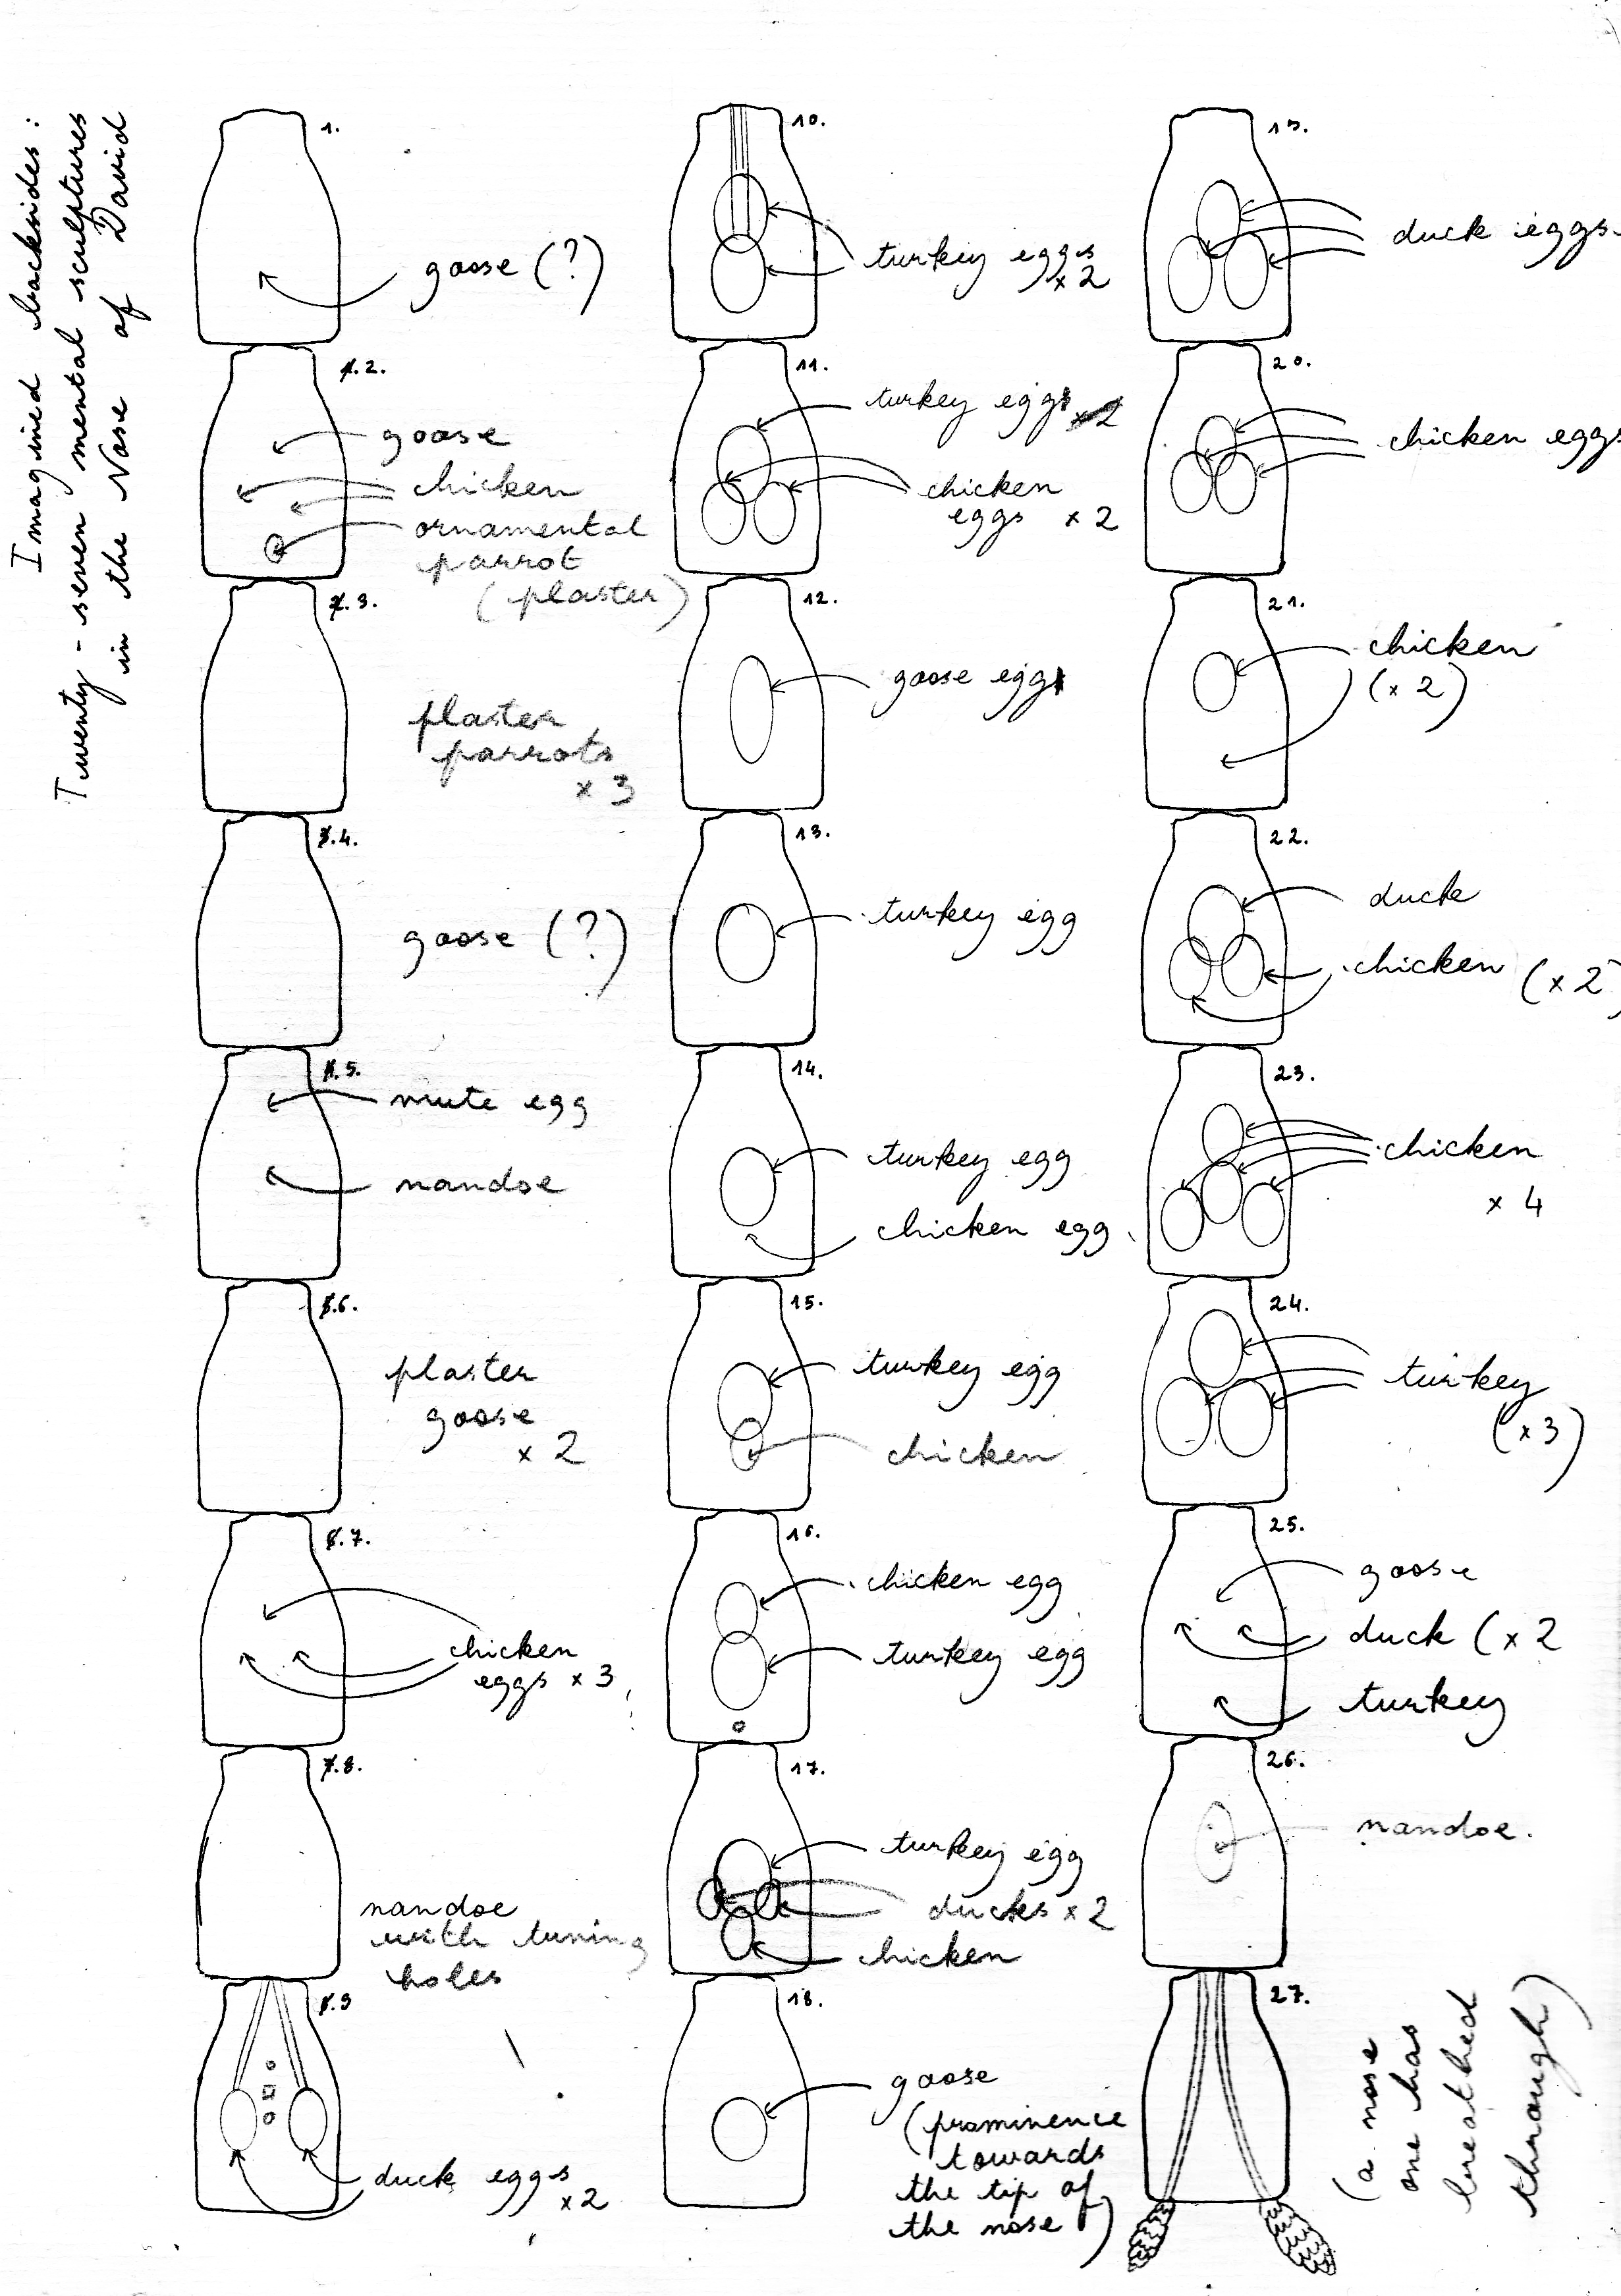 Imagined backsides:
Twenty-seven mental sculptures
in the Nose of David
1.
goose (?)
2.
goose
chicken
ornamental
parrot
(plaster)
3.
plaster
parrots
x 3
4.
goose (?)
5.
mute egg
nandoe
6.
plaster
goose
x 2
7.
chicken
eggs x 3
8.
nandoe
with tuning
holes
9
duck eggs
x2
10.
turkey eggs
x 2
11.
turkey egg
chicken
eggs x 2
12.
goose egg
13.
turkey egg
14.
turkey egg
chicken egg
15.
turkey egg
chicken
16.
chicken egg
turkey egg
17.
turkey egg
ducks x 2
chicken
18.
goose
(prominence
towards
the tip of
the nose)
19.
duck eggs
20.
chicken eggs
21.
chicken
(x 2)
22.
duck
chicken (x 2)
23.
chicken
x 4
24.
turkey
(x3)
25.
goose
duck (x 2
turkey
26.
nandoe.
27.
(a nose
one has
breathed
through)